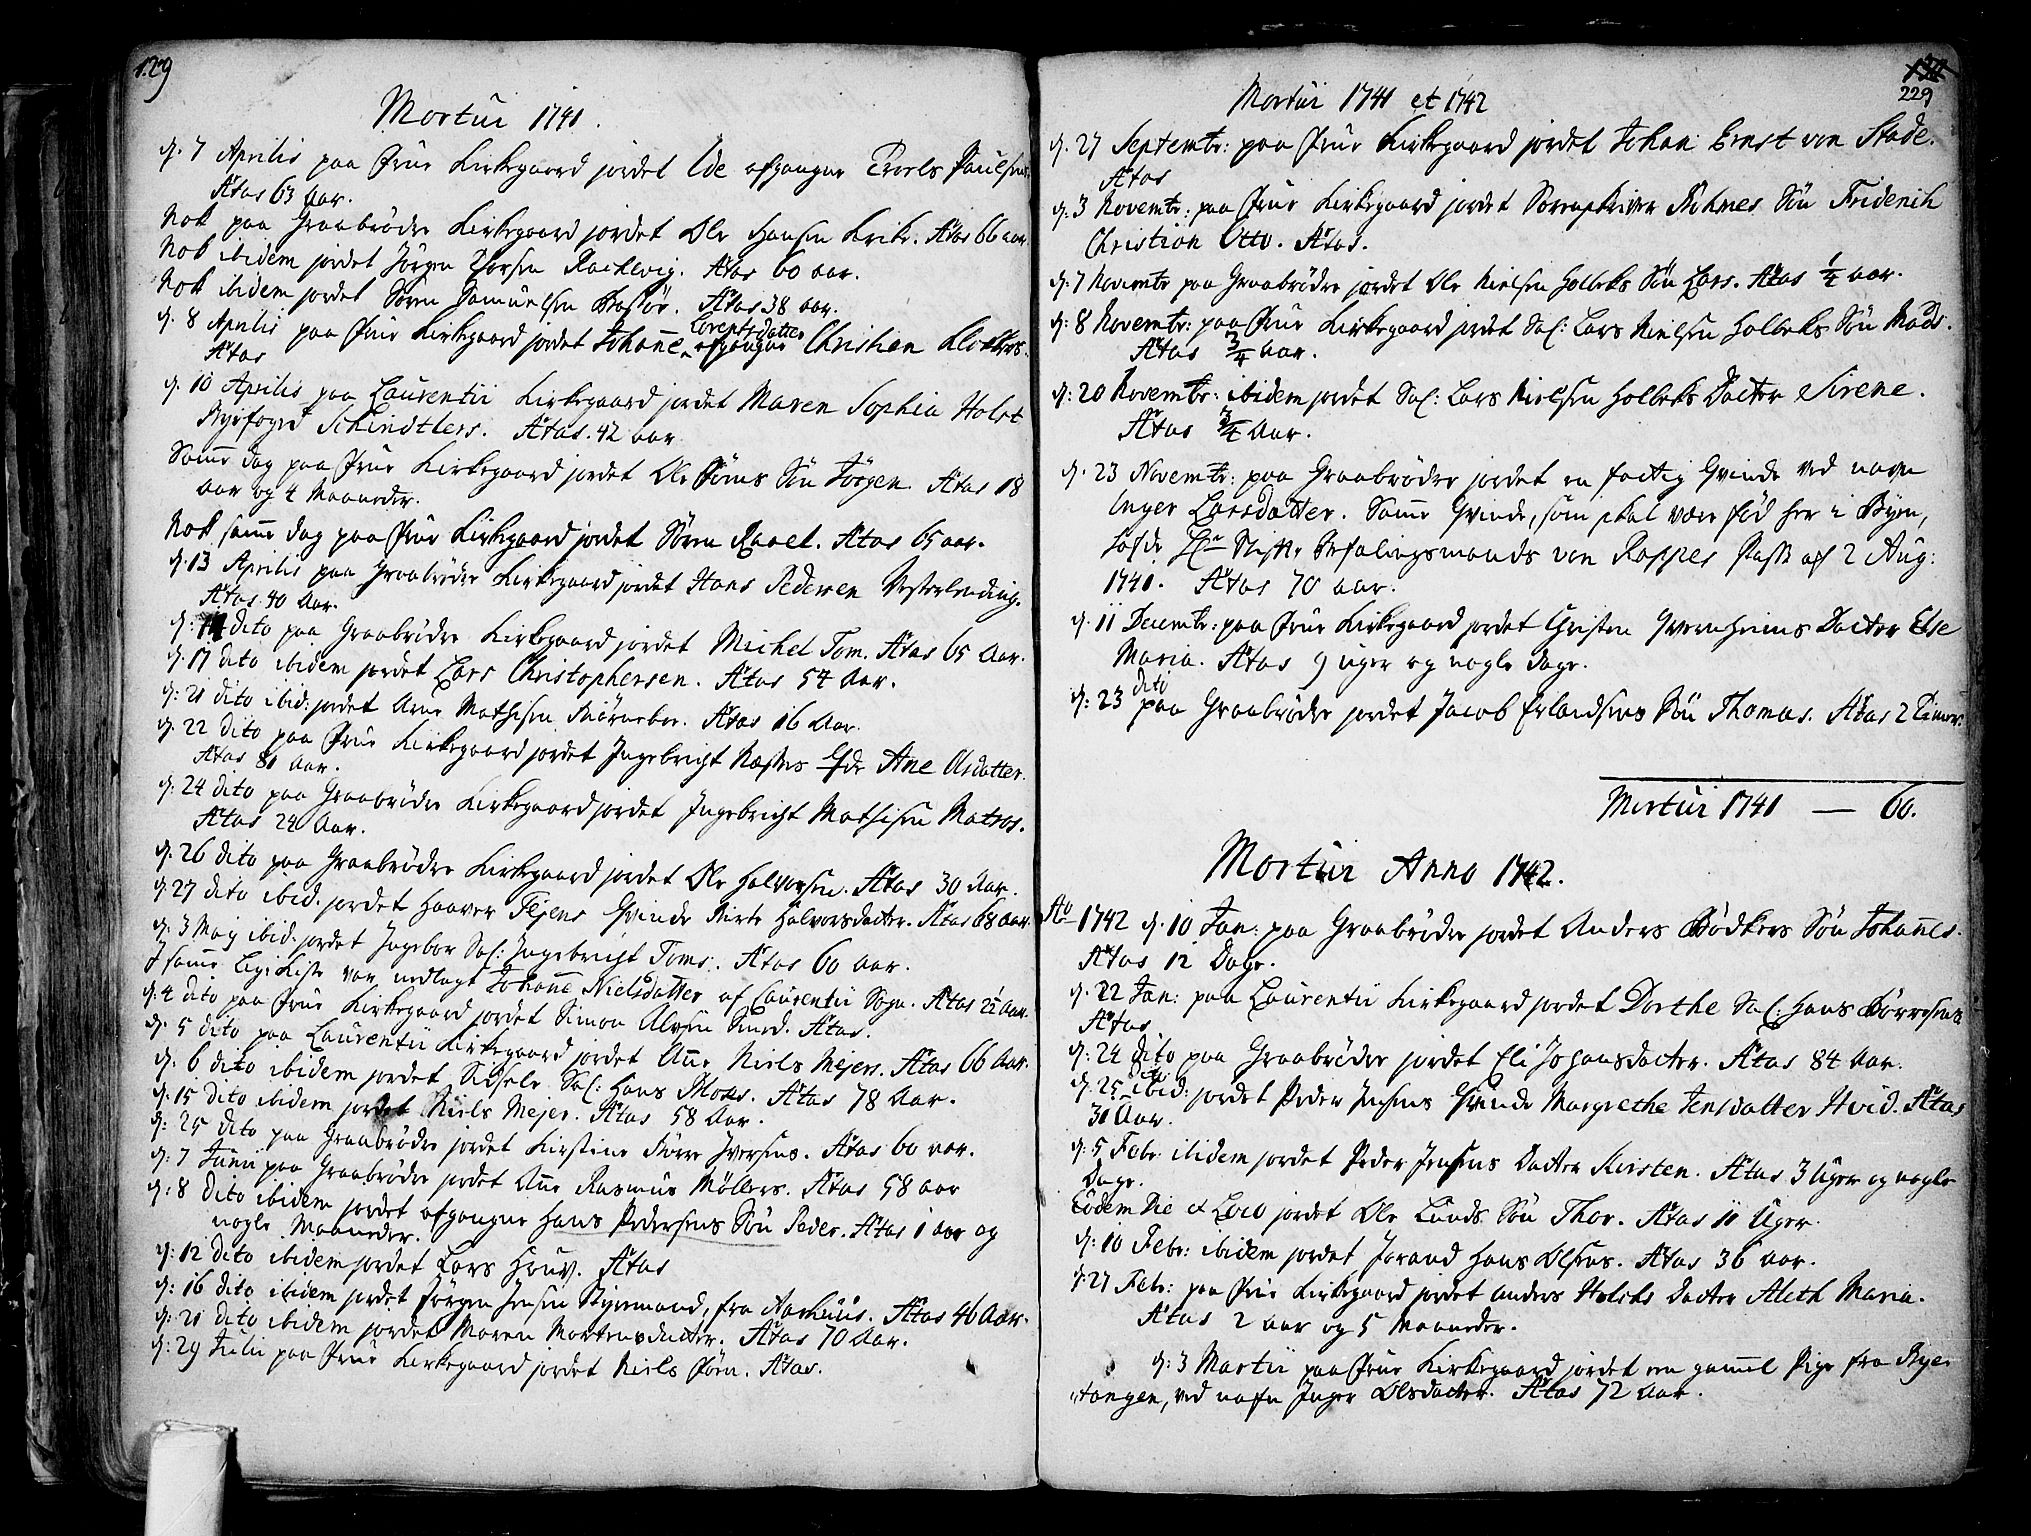 129
Mortui 1741.
d. 7 Aprilis paa Frue Kirkegaard jordet Ide afgangne Troels Paulsens
Ætas 63 Aar.
Nok paa Graabrødre Kirkegaard jordet Ole Hansen Krike. Ætas 66 aar.
Nok ibidem jordet Jörgen Thorsen Rachlevig. Ætas 60 aar.
Nok ibidem jordet Sören Samuelsen. Ætas 38 aar.
d. 8 Aprilis paa Frue Kirkegaard jordet Johanne Lorentzdatter afgangne Christian Klockers.
Ætas
d. 10 Aprilis paa Laurentii Kirkegaard jordet Maren Sophia Holst
Byefoged Schindtlers. Ætas. 42 aar
Samme dag paa Frue Kirkegaard jordet Ole Söns Sön Jörgen. Ætas 18
aar og 4 Maaneder.
Nok samme dag paa Frue Kirkegaard jordet Sören. Ætas 65 aar.
d. 13 Aprilis paa Graabrødre Kirkegaard jordet Hans Pedersen Vesterlending.
Ætas 40 Aar.
d: 14 dito paa Graabrødre Kirkegaard jordet Michel Tom. Ætas 65 Aar.
d. 17 dito ibidem jordet Lars Christophersen. Ætas 54 Aar.
d: 21 dito ibid: jordet Arne Mathisen Biörneboe. Ætas 16 Aar.
d. 22 dito paa Frue Kirkegaard jordet Ingebricht Næstes Efde Ane Olsdatter.
Ætas 80 Aar.
d. 24 dito paa Graabrødre Kirkegaard jordet Ingebricht Mathisen Matros.
Ætas 24 Aar.
d. 26 dito paa Graabrødre Kirkegaard jordet Ole Halvorsen. Ætas 30 Aar.
d. 27 dito ibid. jordet Haaver Tejens Qvinde Birte Halvorsdatter. Ætas 68 aar.
d. 3 Maj ibid: jordet Ingebor Sal: Ingebricht Toms. Ætas 60 aar.
I samme Ligkiste var nedlagt Johanne Nielsdatter af Laurentii Sogn. Ætas 2½ Aar.
d. 4 dito paa Frue Kirkegaard jordet Simon Olvsen Smed. Ætas.
d. 5 dito paa Laurentii Kirkegaard jordet Ane Niels Mejers. Ætas 66 Aar.
d. 6 dito ibidem jordet Sidsele Sal: Hans Moxes. Ætas 78 Aar.
d. 15 dito ibidem jordet Niels Mejer. Ætas 58 Aar.
d: 25 dito paa Graabrødre jordet Kirstine Börre Iversens. Ætas 60 aar.
d: 7 Junii paa Graabrødre jordet Ane Rasmus Möllers. Ætas 58 aar
d: 8 dito ibidem jordet afgangne Hans Pedersens Sön Peder. Ætas 1 aar og
nogle Maaneder.
d: 12 dito ibidem jordet Lars Hruv. Ætas
d: 16 dito ibidem jordet Jörgen Jensen Styrmand, fra Aarhuus. Ætas 46 Aar.
d: 21 dito ibidem jordet Maren Mortensdatter. Ætas 70 Aar.
d: 29 Julii paa Frue Kirkegaard jordet Niels Sörn. Ætas.
229
Mortui 1741 et 1742
d. 27 Septembr: paa Frue Kirkegaard jordet Johan Ernst von Stade.
Ætas
d. 3 Novembr: paa Frue Kirkegaard jordet Sorenskriver Rohmes Sön Friderich
Christian Otto. Ætas.
d: 7 Novembr paa Graabrødre jordet Ole Nielsen Holbeks Sön Lars. Ætas ¼ aar.
d: 8 Novembr: paa Frue Kirkegaard jordet Sal: Lars Nielsen Holbeks Sön Mads.
Ætas ¾ aar.
d: 20 Novembr: ibidem jordet Sal: Lars Nielsen Holbeks Datter Sirene.
Ætas ¾ Aar.
d. 23 Novembr: paa Graabrødre jordet en fattig Qvinde ved navn
Inger Larsdatter. Samme Qvinde, som skal være föd her i Byen,
hafde Hr Befalingsmands von Rappes Pass af 2 Aug:
1741. Ætas 70 aar.
d. 11 Decembr: paa Frue Kirkegaard jordet Christen Qvernheims Datter Else
Maria. Ætas 9 uger og nogle dage.
d: 23 dito paa Graabrødre jordet Jacob Erlandsens Sön Thomas. Ætas 2 Timer
Mortui 1741 — 60.
Mortui Anno 1742.
Ao 1742 d. 10 Jan: paa Graabrødre jordet Anders Bödkers Sön Johannes.
Ætas 12 Dage.
d. 22 Jan: paa Laurentii Kirkegaard jordet Dorthe Sal: Hans Börresens
Ætas
d: 24 dito paa Graabrødre jordet Eli Johansdatter. Ætas 84 Aar.
d. 25 ibid: jordet Peder Jensens Qvinde Margrethe Jensdatter Hvid. Ætas
30 Aar.
d: 5 Febr. ibidem jordet Peder Jensens Datter Kirsten. Ætas 3 Uger og nogle
Dage.
Eodem Die et Loco jordet Ole Lunds Sön Thor. Ætas 11 Uger.
d: 10 Febr: ibidem jordet Jorand Hans Olsens. Ætas 36 aar.
d. 27 Febr: paa Frue Kirkegaard jordet Anders Holsts Datter Aleth Maria.
Ætas 2 aar og 5 Maaneder.
d: 3 Martii paa Frue Kirkegaard jordet en gammel Pige fra Rye-
tangen, ved nafn Inger Olsdatter. Ætas 72 aar.